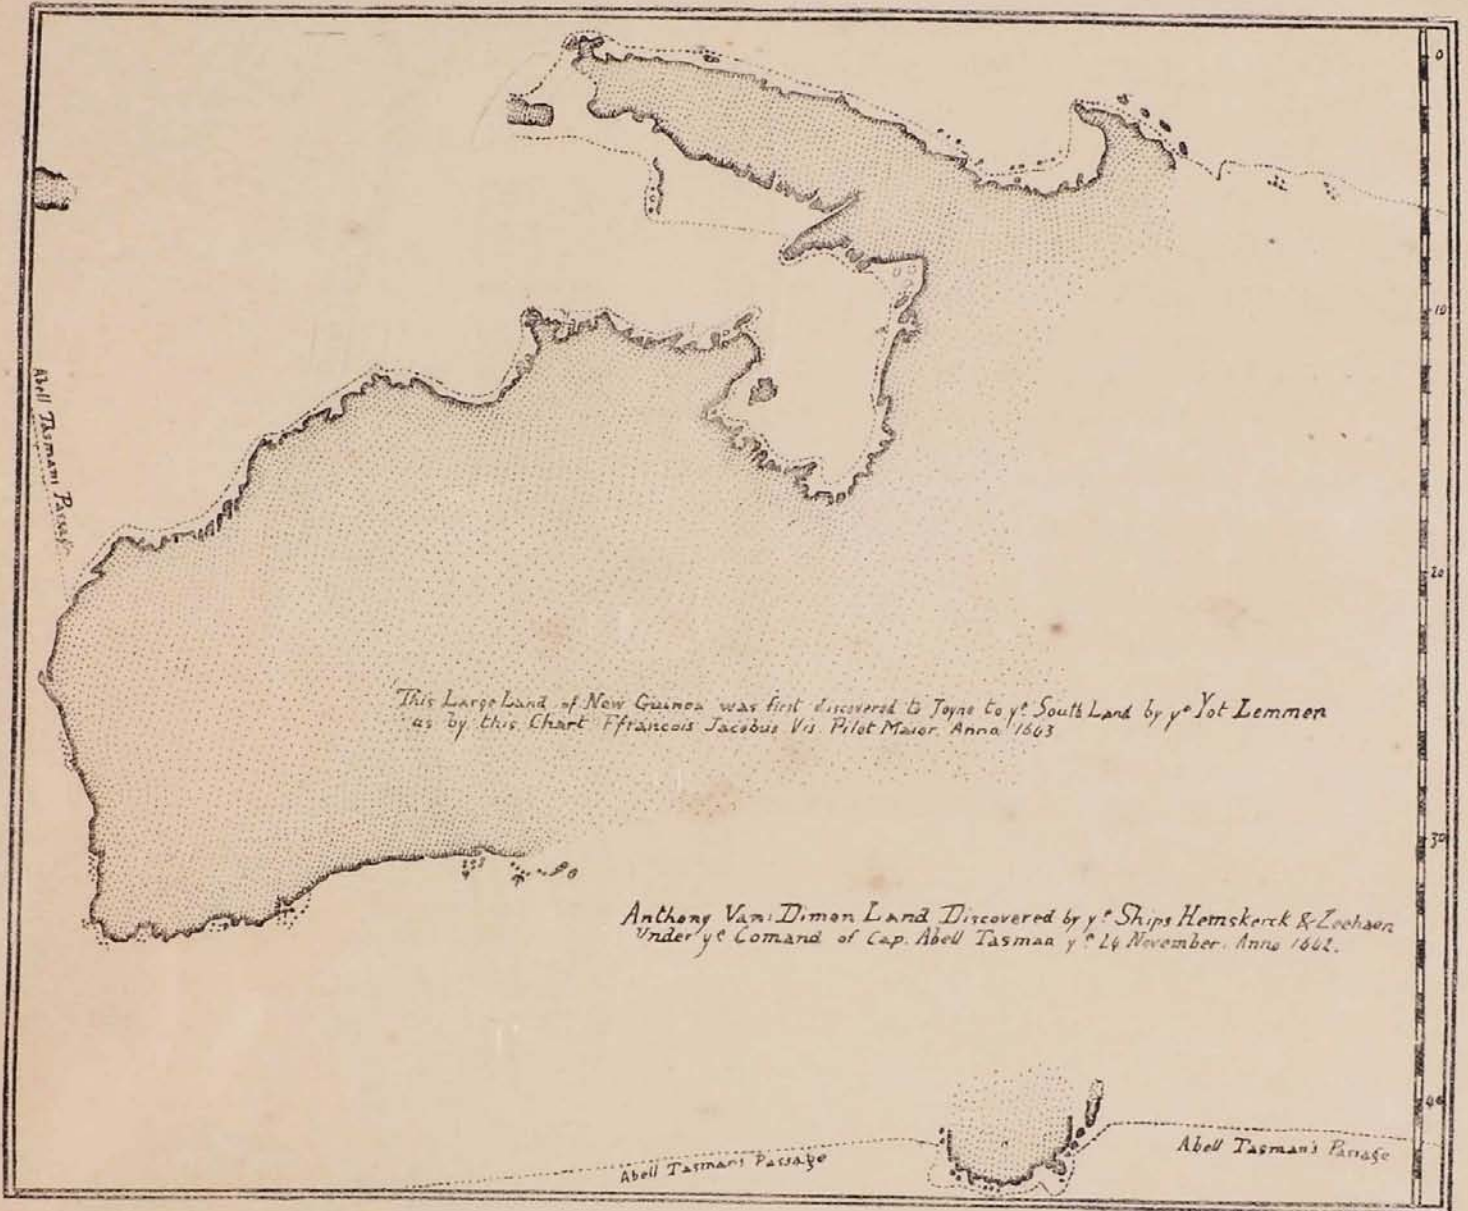 0
10
Abell Tasmans Passage
20
This Large Land of New Guinea was first discovered to Joyne to yᵉ South Land by yᵉ Yot Lemmen
as by this Chart Ffrancois Jacobus Vis. Pilot Maior. Anno 1643
30
Anthony Van: Dimon Land Discovered by yᵉ Ships Hemskerck & Zeehaen
Under yᵉ Comand of Cap. Abell Tasman yᵉ 24 November. Anno 1642.
40
Abell Tasmans Passage
Abell Tasman's Passage